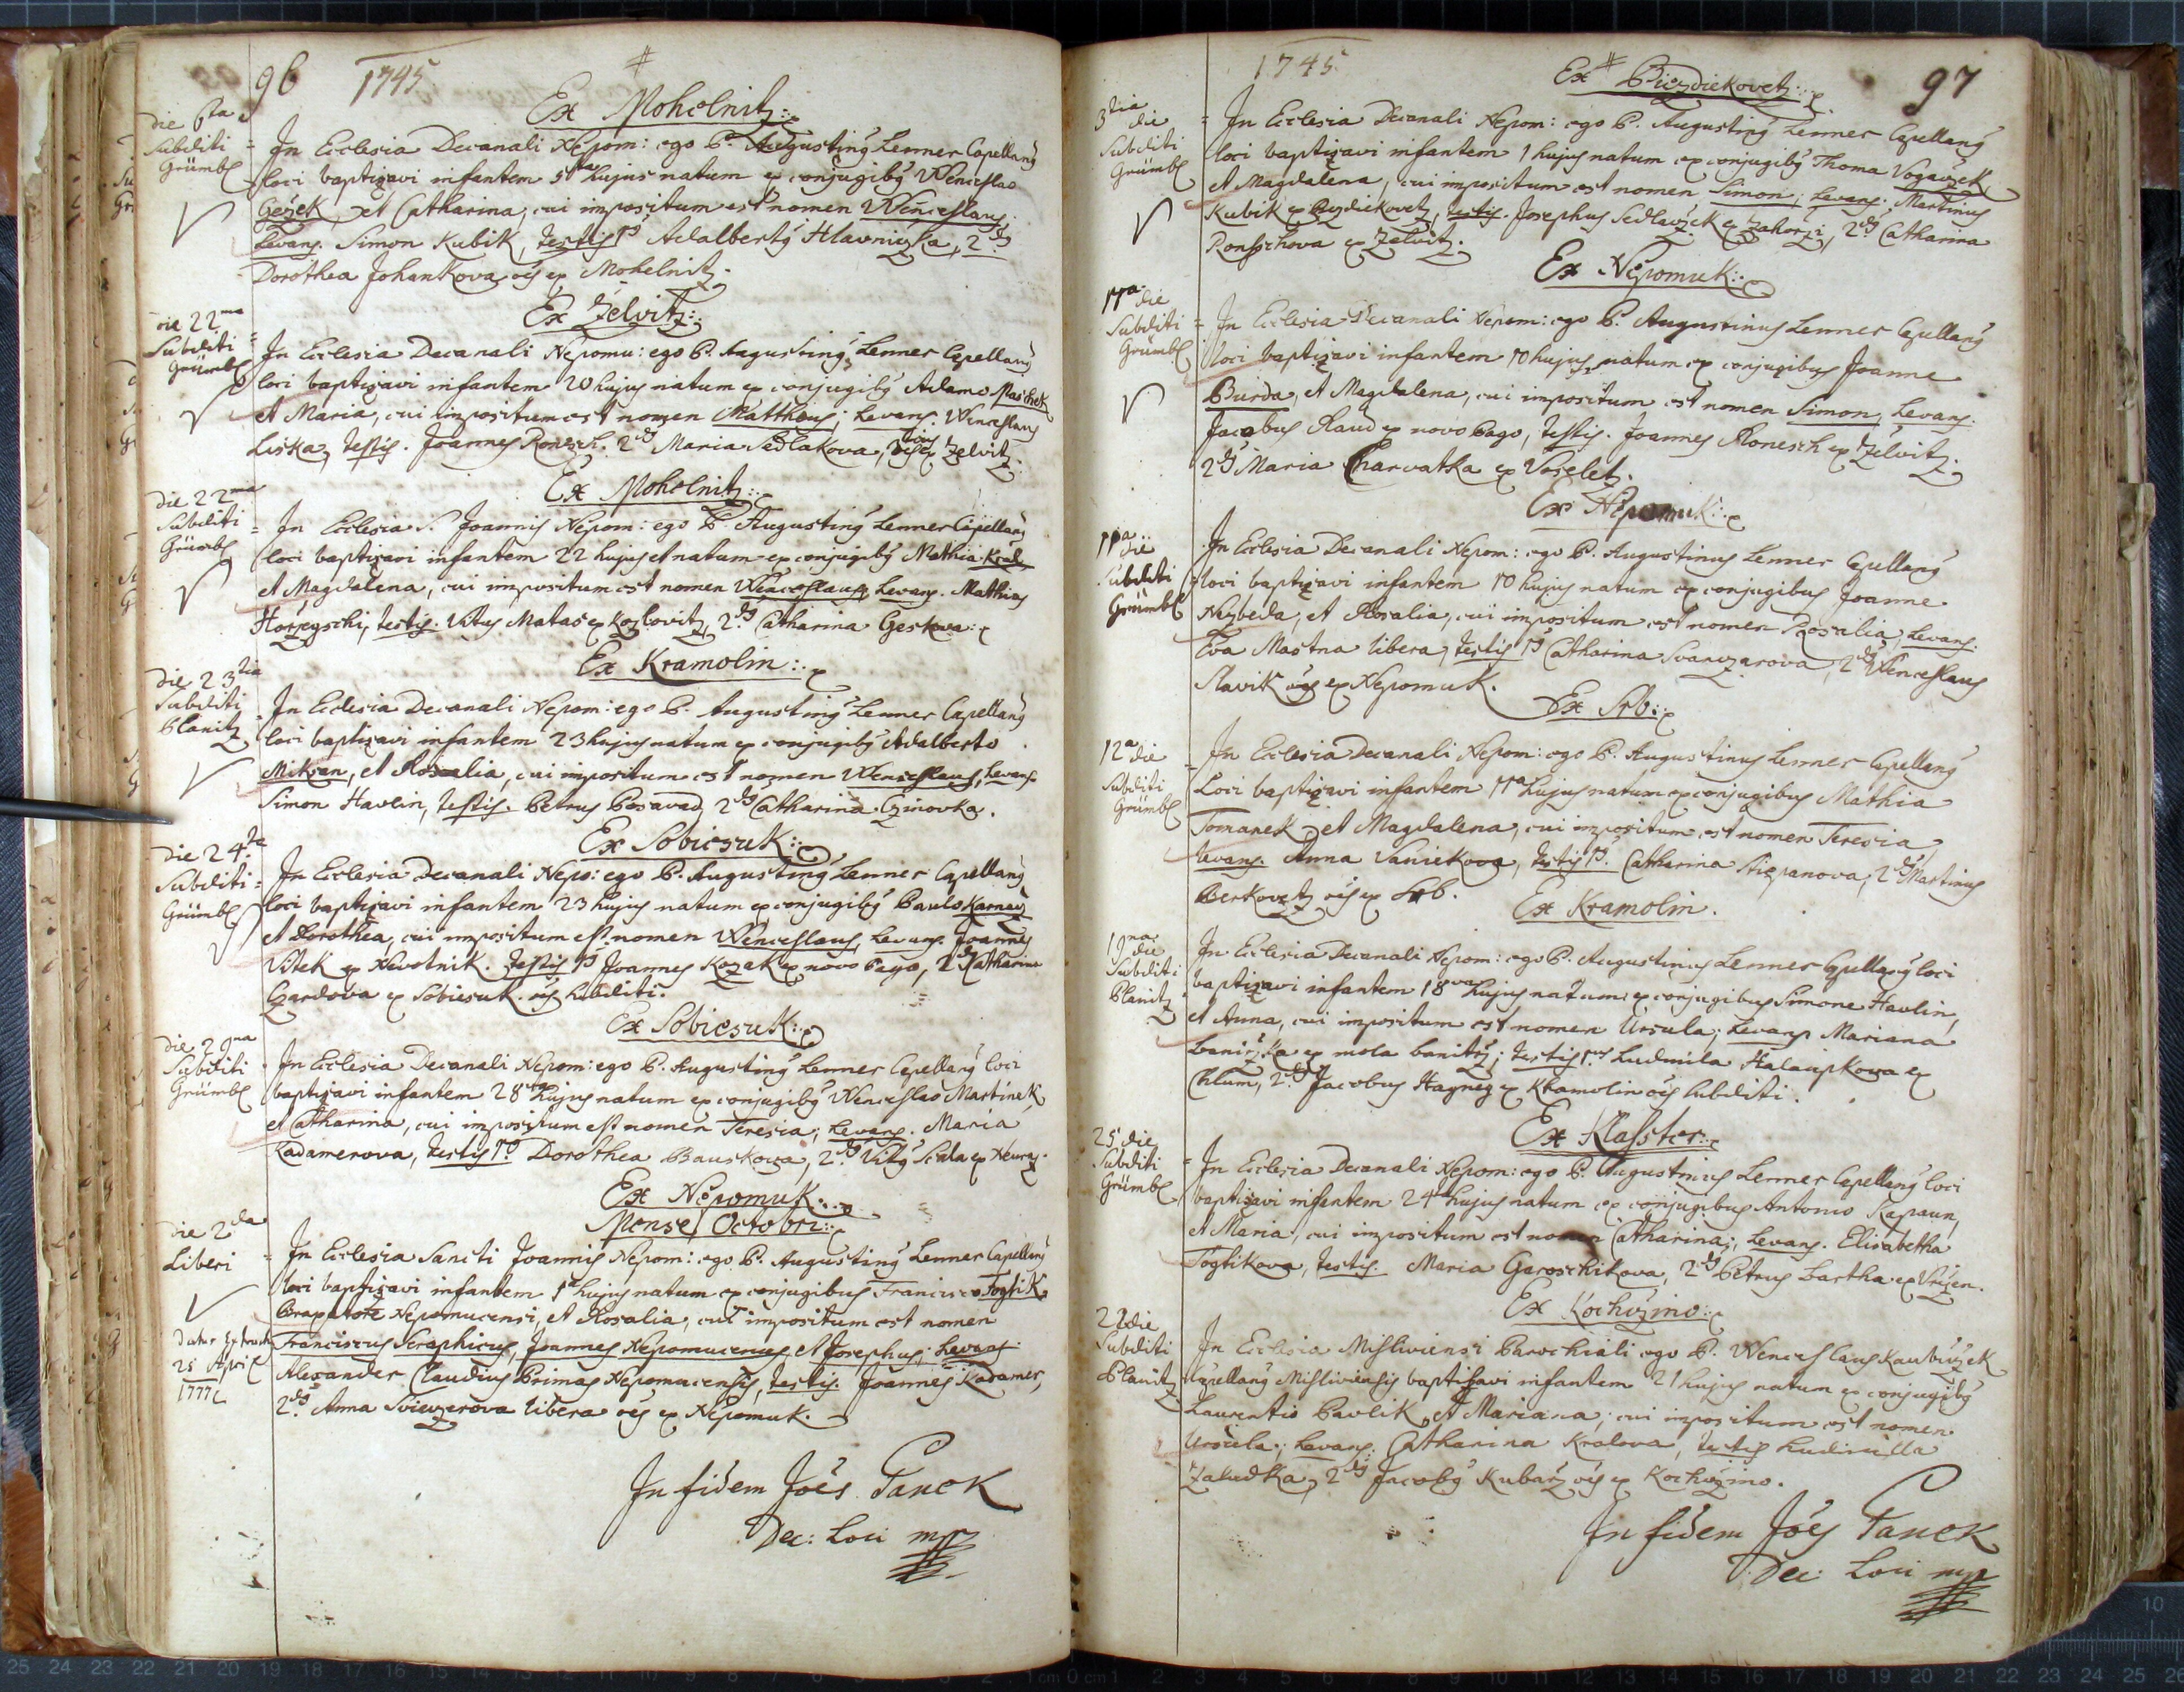 96 1745 #
Ex Mohelnitz
die 6ta
Subditi
Grünb
In Ecclesia Decanali Nepom: ego P. Augustinꝰ Lenner Capellanꝰ
loci baptizavi infantem 5ta hujus natum ex conjugibꝰ Wenceslao
Gežek, et Catharina, cui impositum est nomen Wenceslaus.
Levans. Simon Kubik, testis 1ꝰ Adalbertꝰ Hlavniczka, 2dꝰ
Dorothea Johankova oēs ex Mohelnitz.
Ex Želvitz
die 22ma
Subditi
Grünb
In Ecclesia Decanali Nepomu: ego P. Augustinꝰ Lenner Capellanꝰ
loci baptizavi infantem 20 hujus natum ex conjugibꝰ Adamo Maschek
et Maria, cui impositum est nomen Mattheus; Levans. Wenceslaus
Liška, testis. Joannes Ronesch. 2dꝰ Maria Sedlakova, oēs ex Zelvitz.
Ex Mohelnitz
die 22ma
Subditi
Grünb
In Ecclesia S. Joannis Nepom: ego P. Augustinꝰ Lenner Capellanꝰ
loci baptizavi infantem 22 hujus et natum ex conjugibꝰ Mathia Kral
et Magdalena, cui impositum est nomen Wenceslaus, Levans. Mathias
testis. Vitus Matas ex Kozlovitz, 2dꝰ Catharina Geskova
Ex Kramolin
die 23tia
Subditi
Planitz
In Ecclesia Decanali Nepom: ego P. Augustinꝰ Lenner Capellanꝰ
loci baptizavi infantem 23 hujus natum ex conjugibꝰ Adalberto
Miksan, et Rosalia, cui impositum est nomen Wenceslaus, Levans.
Simon Havlin, testis. Petrus Posavad, 2dꝰ Catharina Czinovka.
Ex Sobiesuk
die 24ta
Subditi
Grünb
In Ecclesia Decanali Nepo: ego P. Augustinꝰ Lenner Capellanꝰ
loci baptizavi infantem 23 hujus natum ex conjugibꝰ Paulo Karney
et Dorothea, cui impositum est nomen Wenceslaus, Levans. Joannes
Vitek ex Kvotnik. testis 1ꝰ Joannes Kozak ex novo Pago, 2dꝰ Catharina
Czardova ex Sobiesuk. oēs subditi.
Ex Sobiesuk
die 29na
Subditi
Grünb
In Ecclesia Decanali Nepom: ego P. Augustinꝰ Lenner Capellanꝰ loci
baptizavi infantem 28va hujus natum ex conjugibꝰ Wenceslao Martinek,
et Catharina, cui impositum est nomen Teresia, Levans. Maria
Kadamerova, testis 1ꝰ Dorothea Bauskova, 2dꝰ Vitꝰ Scala ex
Ex Nepomuk
Mense Octobri
die 2da
Liberi
In Ecclesia Sancti Joannis Nepom: ego P. Augustinꝰ Lenner Capellanꝰ
loci baptizavi infantem 1a hujus natum ex conjugibus Francisco Foglik
Braxatore Nepomucensi, et Rosalia, cui impositum est nomen
datur Extract
25 April
1777
Franciscus Seraphicus, Joannes Nepomucenus, et Josephus; Levans.
Alexander Claudius Primas Nepomucensis, testis. Joannes Kadamer,
2dꝰ Anna Swieczerova libera oēs ex Nepomuk.
In fidem Joēs Panek
Dec: Loci mp
1745 # 97
Ex Biezdiekovetz
3tia die
Subditi
Grünb
In Ecclesia Decanali Nepom: ego P. Augustinꝰ Lenner Capellanꝰ
loci baptizavi infantem 1 hujus natum ex conjugibꝰ Thoma Vogaczek
et Magdalena, cui impositum est nomen Simon, Levans. Martinus
Kubik ex Bezdiekovetz, testis. Josephus Sedlaczek ex Zahorzi, 2dꝰ Catharina
Ronschova ex Zelvitz.
Ex Nepomuk
11a die
Subditi
Grünb
In Ecclesia Decanali Nepom: ego P. Augustinus Lenner Capellanꝰ
loci baptizavi infantem 10 hujus natum ex conjugibus Joanne
Burda, et Magdalena, cui impositum est nomen Simon, Levans.
Jacobus Raud ex novo Pago, testis. Joannes Ronesch ex Želvitz.
2dꝰ Maria Charvatka ex Voselet.
Ex Nepomuk
11a die
Subditi
Grünb
In Ecclesia Decanali Nepom: ego P. Augustinus Lenner Capellanꝰ
loci baptizavi infantem 10 hujus natum ex conjugibus Joanne
Nezbeda, et Rosalia, cui impositum est nomen Rosalia, Levans.
Eva Mastna libera, testis 1ꝰ Catharina Svarczarova, 2dꝰ Wenceslaus
Slavik oēs ex Nepomuk.
Ex Srb
12a die
Subditi
Grünb
In Ecclesia Decanali Nepom: ego P. Augustinus Lenner Capellanꝰ
Loci baptizavi infantem 11a hujus natum ex conjugibus Mathia
Tomanek, et Magdalena, cui impositum est nomen Teresia
Levans. Anna Vaniekova, testis 1ꝰ. Catharina Stiepanova, 2dꝰ Martinus
Berkovetz oēs ex Srb.
Ex Kramolin.
19na die
Subditi
Planitz
In Ecclesia Decanali Nepom: ego P. Augustinus Lenner Capellanꝰ loci
baptizavi infantem 18va hujus natum ex conjugibus Simone Havlin,
et Anna, cui impositum est nomen Ursula; Levans Mariana
ex mola testis 1us Ludmila Halaupkova ex
Chlum, 2dꝰ Jacobus Hayney ex Kramolin oēs subditi.
Ex Klasster
25 die
Subditi
Grünb
In Ecclesia Decanali Nepom: ego P. Augustinus Lenner Capellanꝰ loci
baptizavi infantem 24 hujus natum ex conjugibus Antonio Kapaun,
et Maria, cui impositum est nomen Catharina; Levans. Elisabetha
Foglikova, testis. Maria Garoschikova, 2dꝰ Petrus Bartha ex
Ex Kochozino
22 die
Subditi
Planitz
In Ecclesia Misliviensi Parochiali ego P. Wenceslaus Kaubiczek
Capellanꝰ Misliviensis baptisavi infantem 21 hujus natum ex conjugibꝰ
Laurentio Pavlik, et Mariana; cui impositum est nomen
Ursula; Levans. Catharina Kralova, testis Ludimilla
Zaludka, 2dꝰ Jacobꝰ Kubarz oēs ex Kochozino.
In fidem Joēs Panek
Dec: Loci mp